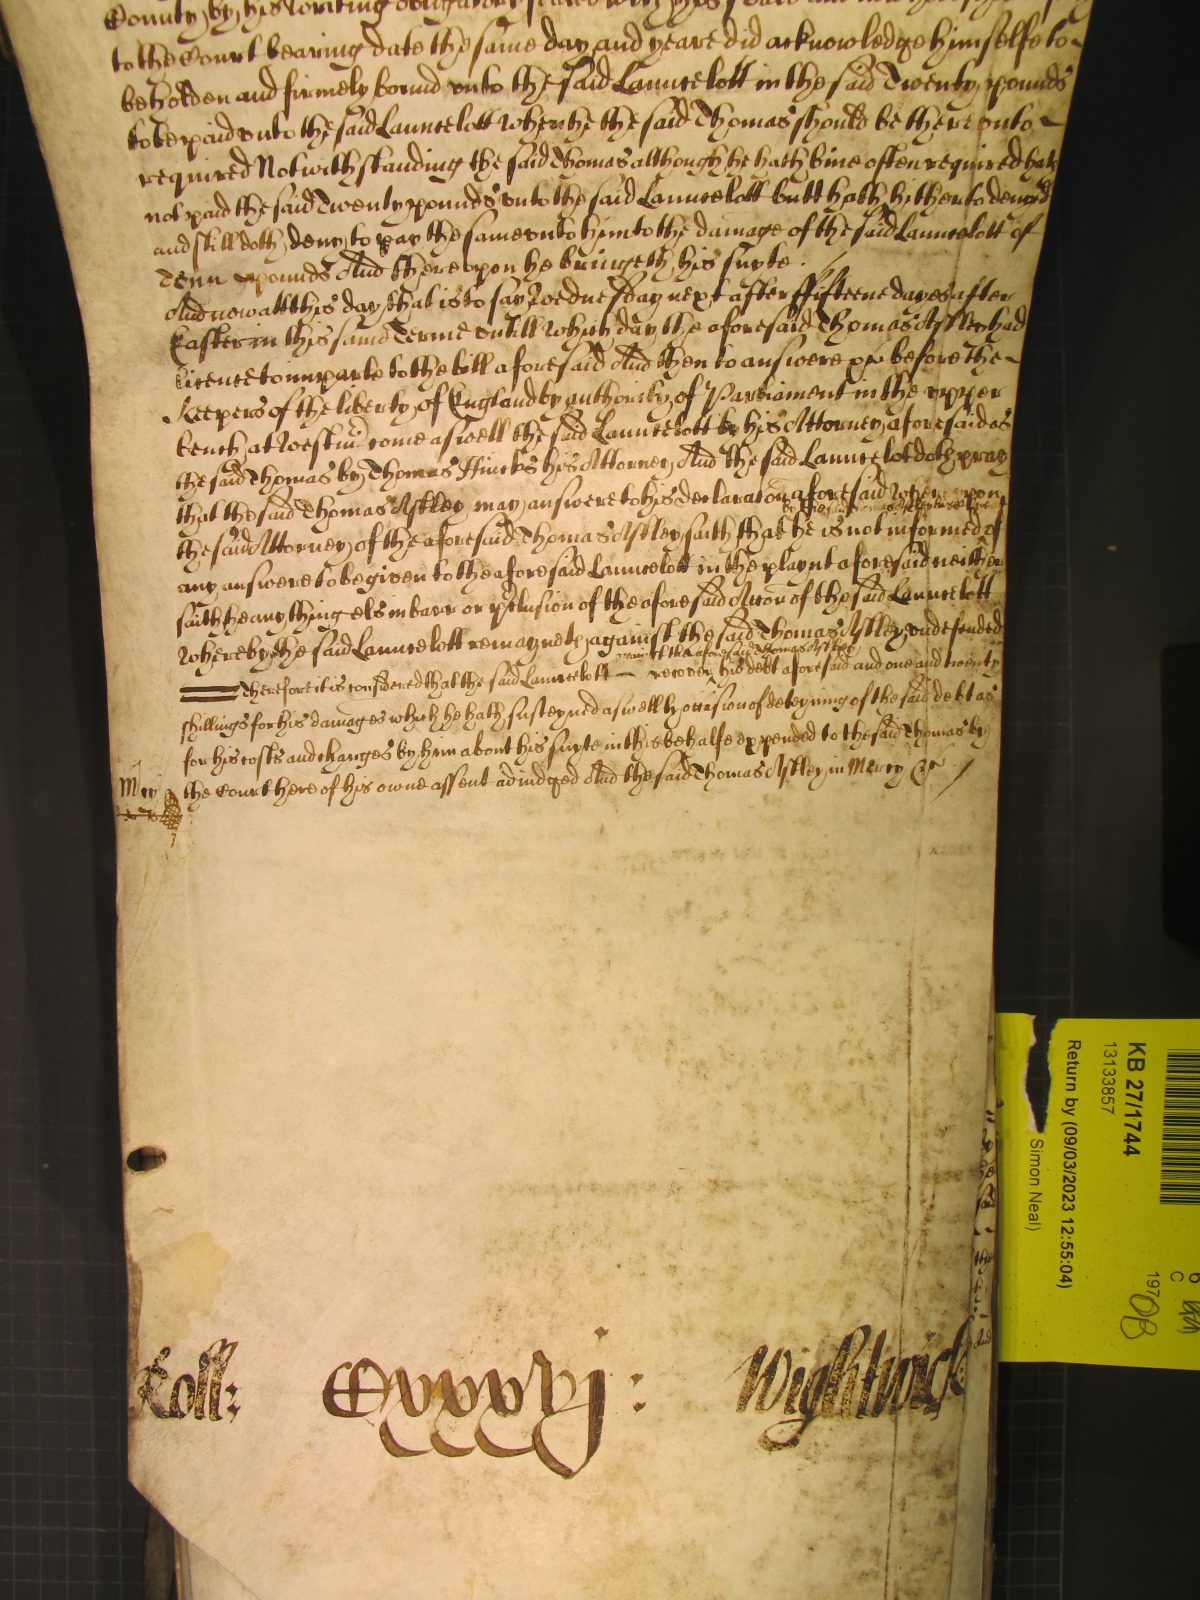 County by his writing obligatory sealed with his seale and
to the Court bearing date the same day and yeare did acknowledge himselfe to
be holden and firmely bound unto the said Launcelott in the said Twenty pounds
to be paid unto the said Launcelott when he the said Thomas should be thereunto
required Notwithstanding the said Thomas although he hath bine often required hath
not paid the said Twenty pounds unto the said Launcelott butt hath hitherto denyed
and still doth deny to pay the same unto him to the damage of the said Launcelott of
Tenn pounds And thereupon he bringeth his suyte
And now att this day that is to say Wednesday next after ffifteene dayes after
Easter in this same Terme untill which day the aforesaid Thomas Astley had
licence to imparle to the bill aforesaid And then to answere &c before the
Keepers of the liberty of England by authority of Parliament in the upper
bench at Westm come aswell the said Launcelott by his Attorney aforesaid as
the said Thomas by Thomas Hincks his Attorney And the said Launcelot doth pray
that the said Thomas Astley may answere to his declaracon aforesaid Whereupon
the said Attorney of the aforesaid Thomas Astley saith that he is not informed of
any answere to be given to the aforesaid Launcelott in the playnt aforesaid neither
saith he any thing els in barr or preclusion of the aforesaid Accon of the said Launcelott
Whereby the said Launcelott remayneth against the said Thomas Astley undefended
against the aforesaid Thomas Astley
Therefore it is considered that the said Launcelott recover his debt aforesaid and one and twenty
shillings for his damages which he hath susteyned aswell by occasion of deteyning of the said debt as
for his costs and charges by him about his suyte in this behalfe expended to the said Thomas by
the Court here of his owne assent adiudged And the said Thomas Astley in Mercy &c
Mcy
Roll: Cxxxvj: Wightwick
KB 27/1744
13133857
Return by (09/03/2023 12:55:04)
Simon Neal)
197
6
C